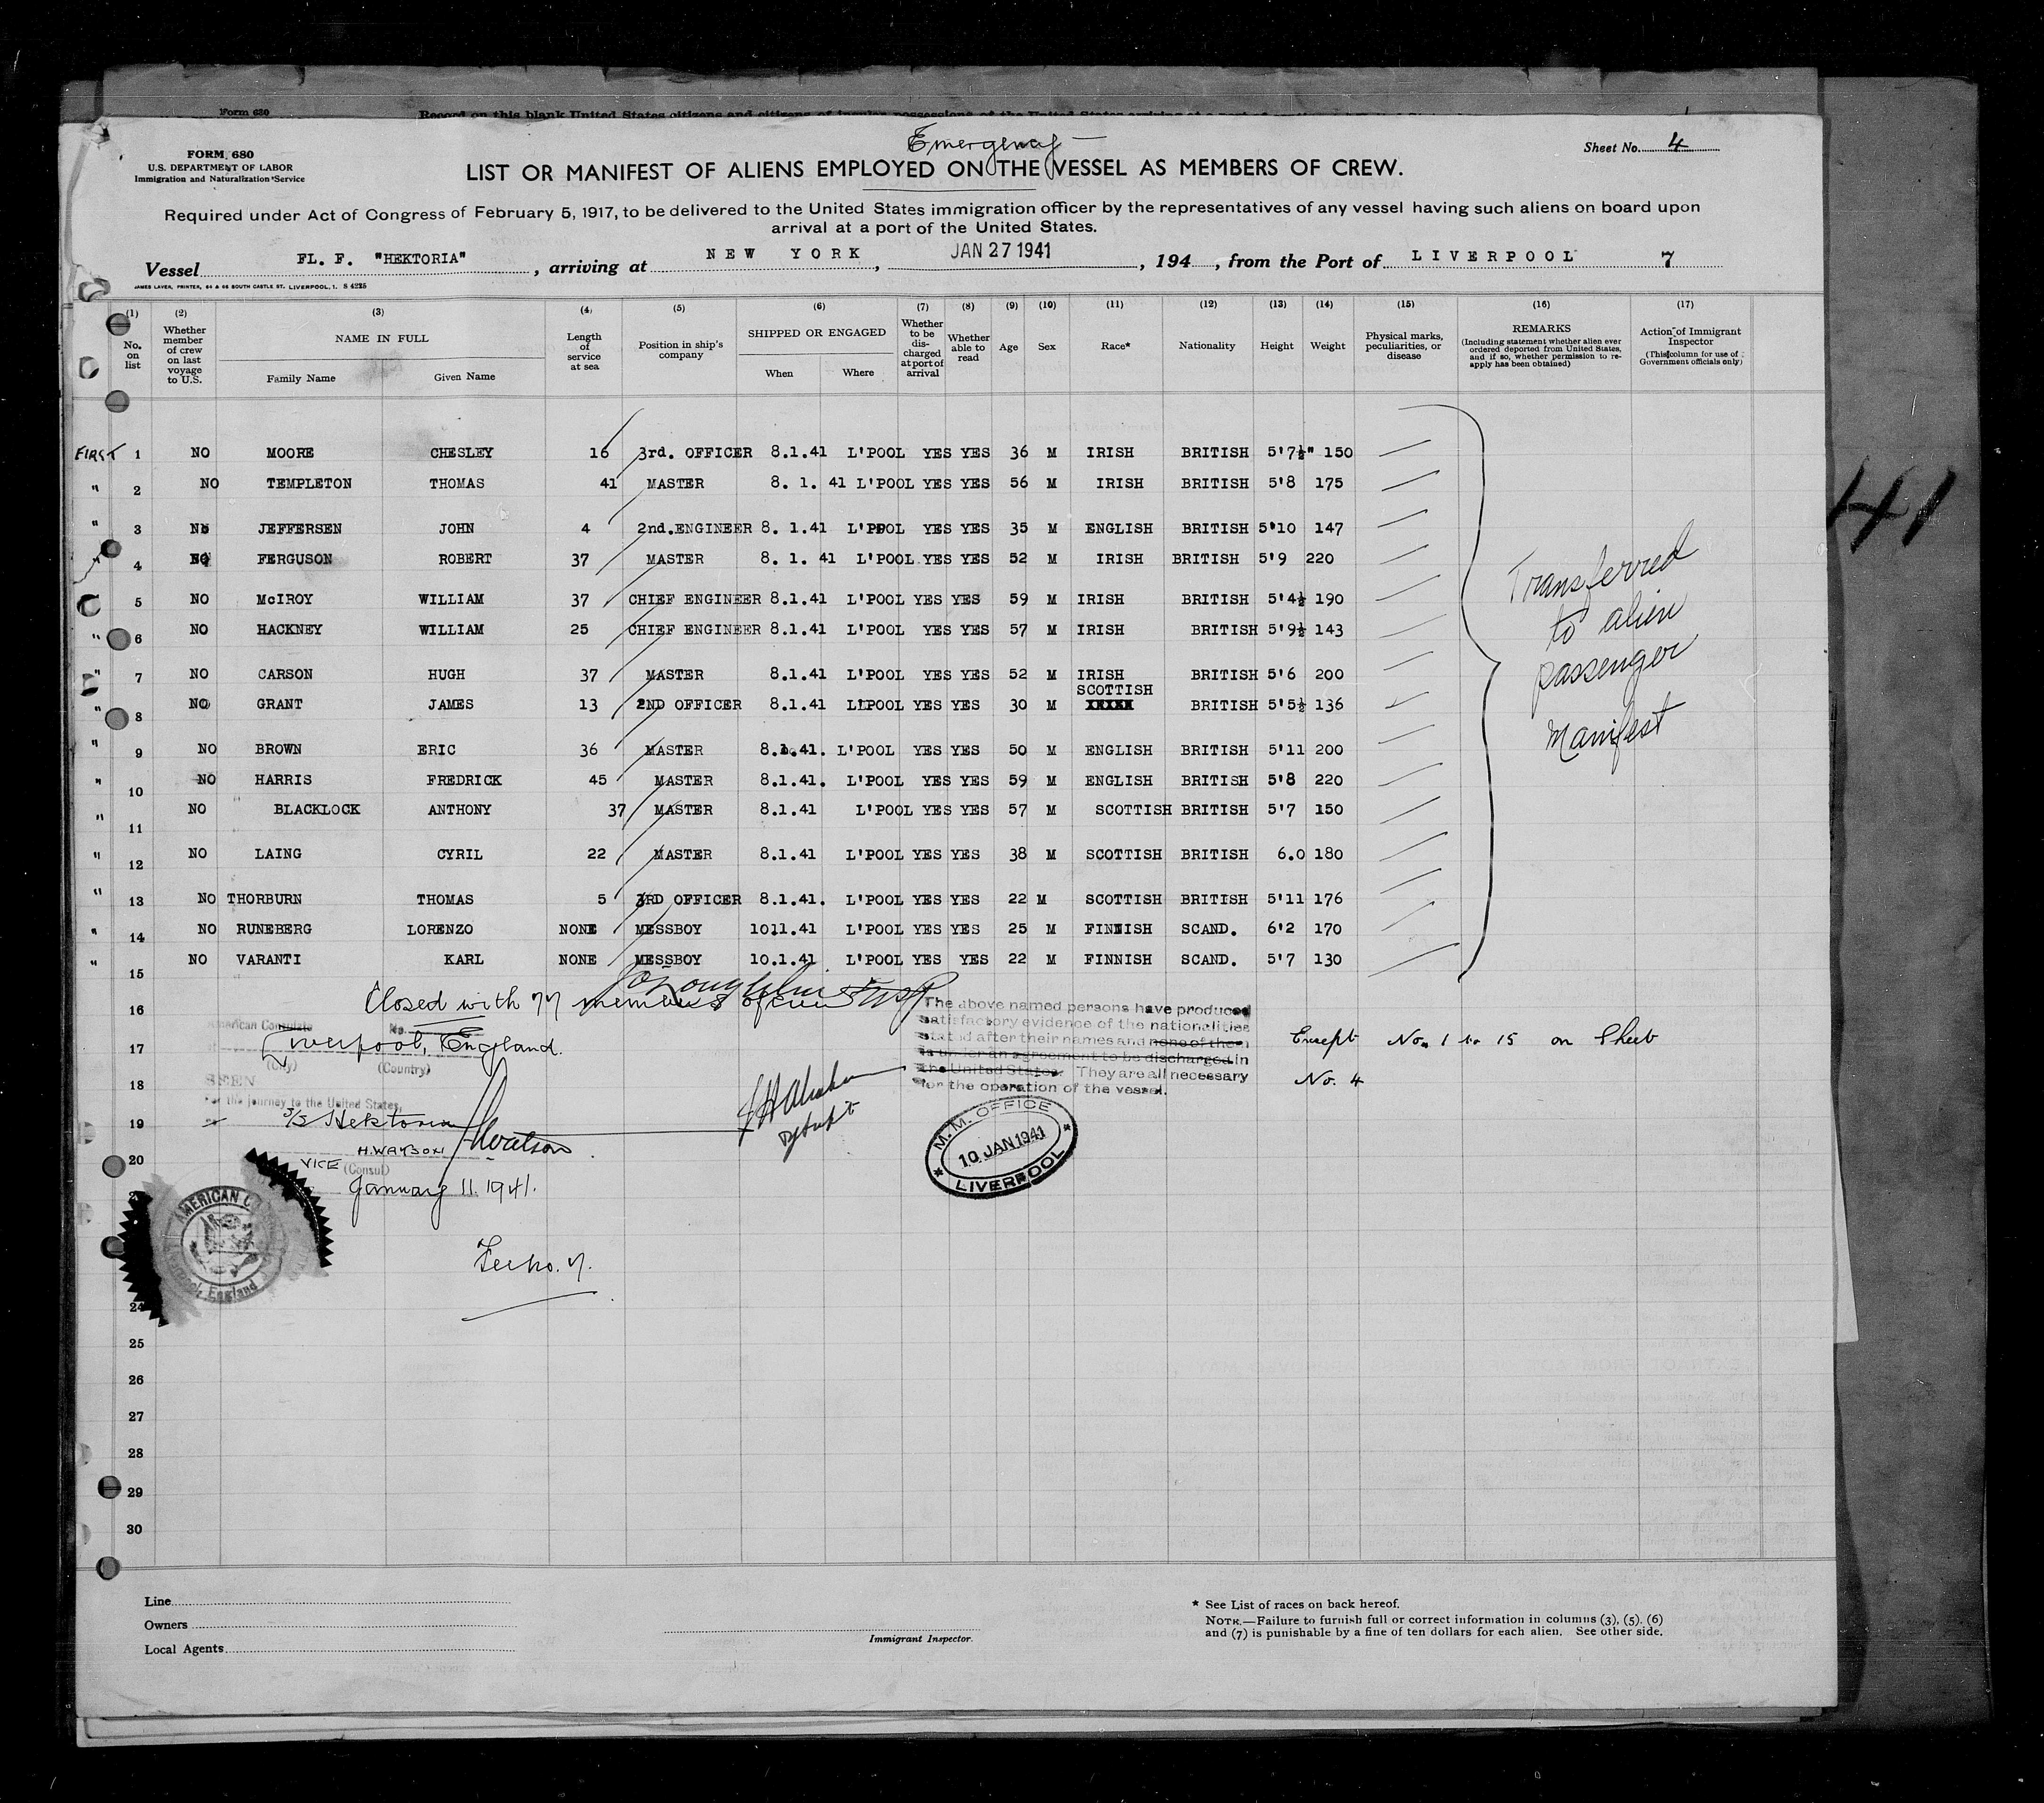 Form 630
Record on this blank United States citizens and citizens of insular possessions of the United States arriving at a port of
FORM 680
U.S. DEPARTMENT OF LABOR
Immigration and Naturalization Service
Emergency
Sheet No. 4
LIST OR MANIFEST OF ALIENS EMPLOYED ON THE VESSEL AS MEMBERS OF CREW.
Required under Act of Congress of February 5, 1917, to be delivered to the United States immigration officer by the representatives of any vessel having such aliens on board upon
arrival at a port of the United States.
Vessel FL. F. "HEKTORIA", arriving at NEW YORK, JAN 27 1941, 194 , from the Port of LIVERPOOL 7
JAMES LAVER, PRINTER, 64 & 66 SOUTH CASTLE ST. LIVERPOOL, 1. S 4225
(1) No. on list
(2) Whether member of crew on last voyage to U.S.
(3) NAME IN FULL Family Name Given Name
(4) Length of service at sea
(5) Position in ship's company
(6) SHIPPED OR ENGAGED When Where
(7) Whether to be discharged at port of arrival
(8) Whether able to read
(9) Age
(10) Sex
(11) Race*
(12) Nationality
(13) Height
(14) Weight
(15) Physical marks, peculiarities, or disease
(16) REMARKS (Including statement whether alien ever ordered deported from United States, and if so, whether permission to re-apply has been obtained)
(17) Action of Immigrant Inspector (This column for use of Government officials only)
FIRST 1 NO MOORE CHESLEY 16 3rd. OFFICER 8.1.41 L'POOL YES YES 36 M IRISH BRITISH 5'7½" 150
" 2 NO TEMPLETON THOMAS 41 MASTER 8. 1. 41 L'POOL YES YES 56 M IRISH BRITISH 5'8 175
" 3 NO JEFFERSEN JOHN 4 2nd.ENGINEER 8. 1.41 L'POOL YES YES 35 M ENGLISH BRITISH 5'10 147
4 NO FERGUSON ROBERT 37 MASTER 8. 1. 41 L'POOL YES YES 52 M IRISH BRITISH 5'9 220
5 NO McIROY WILLIAM 37 CHIEF ENGINEER 8.1.41 L'POOL YES YES 59 M IRISH BRITISH 5'4½ 190
" 6 NO HACKNEY WILLIAM 25 CHIEF ENGINEER 8.1.41 L'POOL YES YES 57 M IRISH BRITISH 5'9½ 143
" 7 NO CARSON HUGH 37 MASTER 8.1.41 L'POOL YES YES 52 M IRISH BRITISH 5'6 200
SCOTTISH
" 8 NO GRANT JAMES 13 2ND OFFICER 8.1.41 L'POOL YES YES 30 M XXXXX BRITISH 5'5½ 136
" 9 NO BROWN ERIC 36 MASTER 8.1.41. L'POOL YES YES 50 M ENGLISH BRITISH 5'11 200
" 10 NO HARRIS FREDRICK 45 MASTER 8.1.41. L'POOL YES YES 59 M ENGLISH BRITISH 5'8 220
" 11 NO BLACKLOCK ANTHONY 37 MASTER 8.1.41 L'POOL YES YES 57 M SCOTTISH BRITISH 5'7 150
" 12 NO LAING CYRIL 22 MASTER 8.1.41 L'POOL YES YES 38 M SCOTTISH BRITISH 6.0 180
" 13 NO THORBURN THOMAS 5 3RD OFFICER 8.1.41. L'POOL YES YES 22 M SCOTTISH BRITISH 5'11 176
" 14 NO RUNEBERG LORENZO NONE MESSBOY 1011.41 L'POOL YES YES 25 M FINNISH SCAND. 6'2 170
" 15 NO VARANTI KARL NONE MESSBOY 10.1.41 L'POOL YES YES 22 M FINNISH SCAND. 5'7 130
Transferred
to alien
passenger
Manifest
41
16
Closed with 77 members of crew
American Consulate No.
Liverpool, England.
(City) (Country)
17
SEEN
18
For the journey to the United States,
S/S Hektoria
19
H. WATSON
20
VICE (Consul)
January 11. 1941.
AMERICAN C
England
Fee No. 7.
The above named persons have produced
satisfactory evidence of the nationalities
stated after their names and none of them
is under an agreement to be discharged in
the United States. They are all necessary
for the operation of the vessel.
Except Nos 1 to 15 on Sheet
No. 4
M.M. OFFICE
10 JAN 1941
LIVERPOOL
24
25
26
27
28
29
30
Line
Owners
Local Agents
Immigrant Inspector.
* See List of races on back hereof.
NOTE.—Failure to furnish full or correct information in columns (3), (5), (6)
and (7) is punishable by a fine of ten dollars for each alien. See other side.